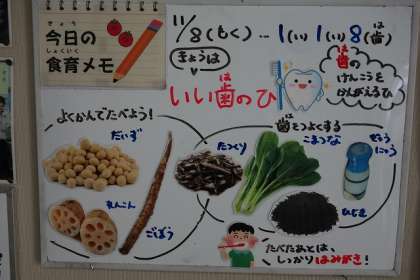 きょう
今日の
しょくいく
食育メモ
11/8(もく)… 1(い) 1(い) 8(歯)
きょうは
いい歯のひ
は
歯の
けんこうを
かんがえるひ
よくかんでたべよう!
だいず
れんこん
ごぼう
歯をつよくする
たつくり
こまつな
ぎゅう
にゅう
ひじき
たべたあとは、
しっかりはみがき!